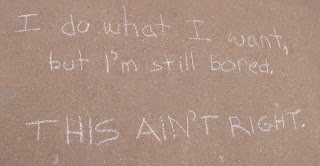 I do what I want,
but I'm still bored.
THIS AIN'T RIGHT.